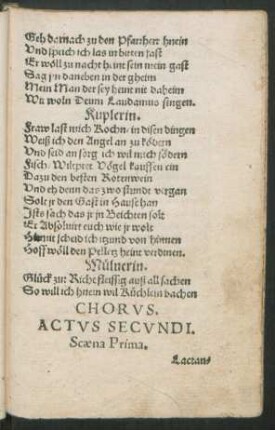 Geh darnach zu den Pfarrherr hinein
Vnd sprich ich las in bitten fast
Er wöll zu nacht heint sein mein gast
Sag jm daneben in der gheim
Mein Man der sey heint nit daheim
Wir woln Deum Laudamus singen.
Kuplerin.
Fraw last mich Kochn in disen dingen
Weiß ich den Angel an zu ködern
Vnd seid an sorg ich wil euch födern
Fisch Wilpret Vögel kauffen ein
Dazu den besten Rotenwein
Vnd eh denn das zwo stundt vergan
Solt jr den Gast in Hause han
Ists sach das jr jn Beichten solt
Er Absoluirt euch wie jr wolt
Hiemit scheid ich itzund von hinnen
Hoff wöll den Peltz heint verdinen.
Mülnerin.
Glück zu Richt fleissig auß all sachen
So will ich hnein wil Küchlein bachen
CHORVS.
ACTVS SECVNDI.
Scæna Prima.
Lactan⸗